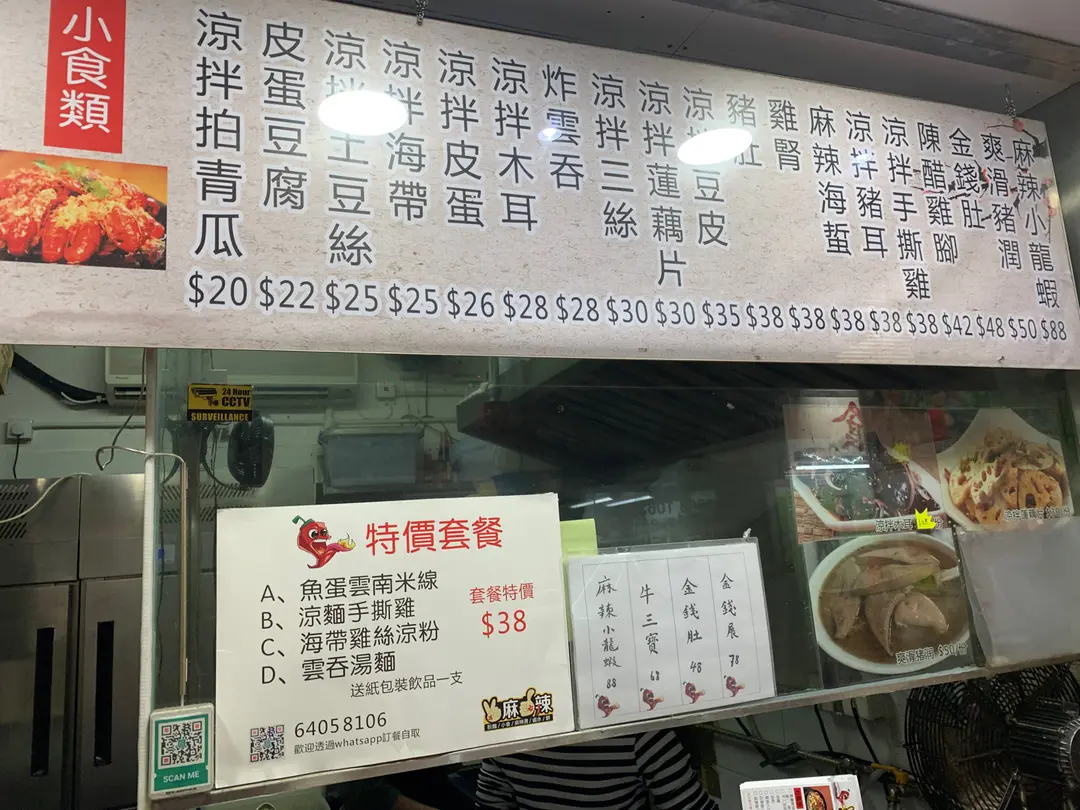 小食類
涼拌拍青瓜 $20
皮蛋豆腐 $22
涼拌土豆絲 $25
涼拌海帶 $25
涼拌皮蛋 $26
涼拌木耳 $28
炸雲吞 $28
涼拌三絲 $30
涼拌蓮藕片 $30
涼拌豆皮 $35
豬肚 $38
雞腎 $38
麻辣海蜇 $38
涼拌豬耳 $38
涼拌手撕雞 $38
陳醋雞腳 $42
金錢肚 $48
爽滑豬潤 $50
麻辣小龍蝦 $88
24 Hour
CCTV
SURVEILLANCE
特價套餐
A、魚蛋雲南米線
B、涼麵手撕雞
C、海帶雞絲涼粉
D、雲吞湯麵
套餐特價
$38
送紙包裝飲品一支
64058106
歡迎透過whatsapp訂餐自取
麻辣
SCAN ME
麻辣小龍蝦 88
牛三寶 68
金錢肚 48
金錢展 78
涼拌木耳
爽滑猪润 $50/份